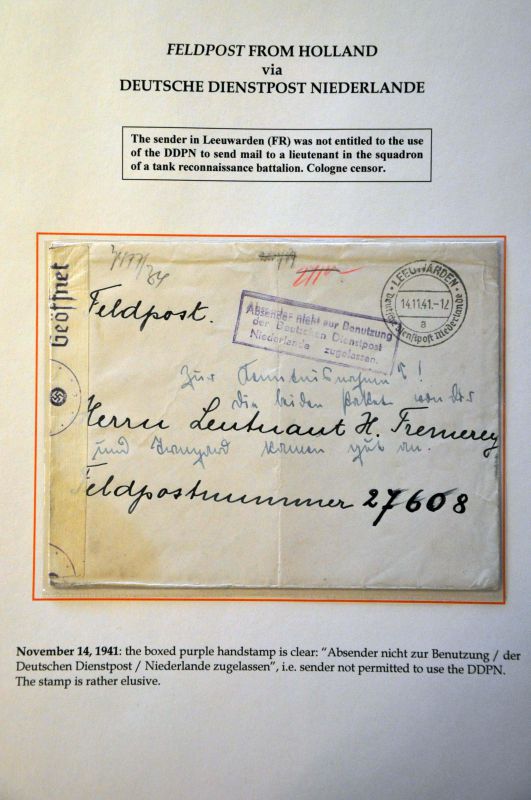 FELDPOST FROM HOLLAND
via
DEUTSCHE DIENSTPOST NIEDERLANDE
The sender in Leeuwarden (FR) was not entitled to the use
of the DDPN to send mail to a lieutenant in the squadron
of a tank reconnaissance battalion. Cologne censor.
Geöffnet
Feldpost.
Absender nicht zur Benutzung
der Deutschen Dienstpost
Niederlande zugelassen.
LEEUWARDEN
14.11.41.-12
a
Deutsche Dienstpost Niederlande
Zur Kenntnisnahme!
die beiden
Herrn Leutnant H. Fremerey
und kamen gut an.
Feldpostnummer 27608
November 14, 1941: the boxed purple handstamp is clear: “Absender nicht zur Benutzung / der
Deutschen Dienstpost / Niederlande zugelassen”, i.e. sender not permitted to use the DDPN.
The stamp is rather elusive.